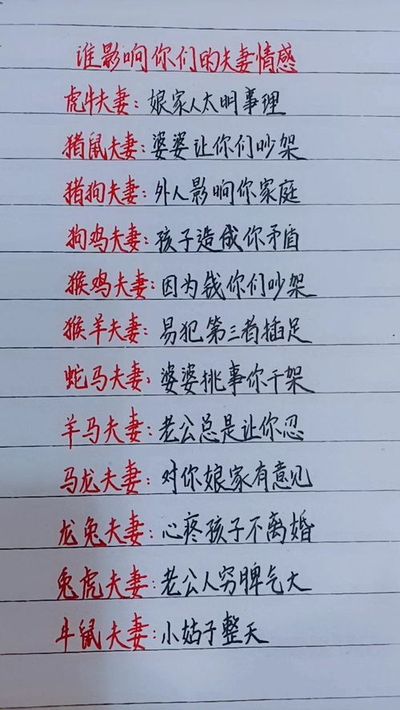 谁影响你们的夫妻情感
虎牛夫妻:娘家人太明事理
猪鼠夫妻:婆婆让你们吵架
猪狗夫妻:外人影响你家庭
狗鸡夫妻:孩子造成你矛盾
猴鸡夫妻:因为钱你们吵架
猴羊夫妻:易犯第三者插足
蛇马夫妻:婆婆挑事你干架
羊马夫妻:老公总是让你忍
马龙夫妻:对你娘家有意见
龙兔夫妻:心疼孩子不离婚
兔虎夫妻:老公人穷脾气大
牛鼠夫妻:小姑子整天